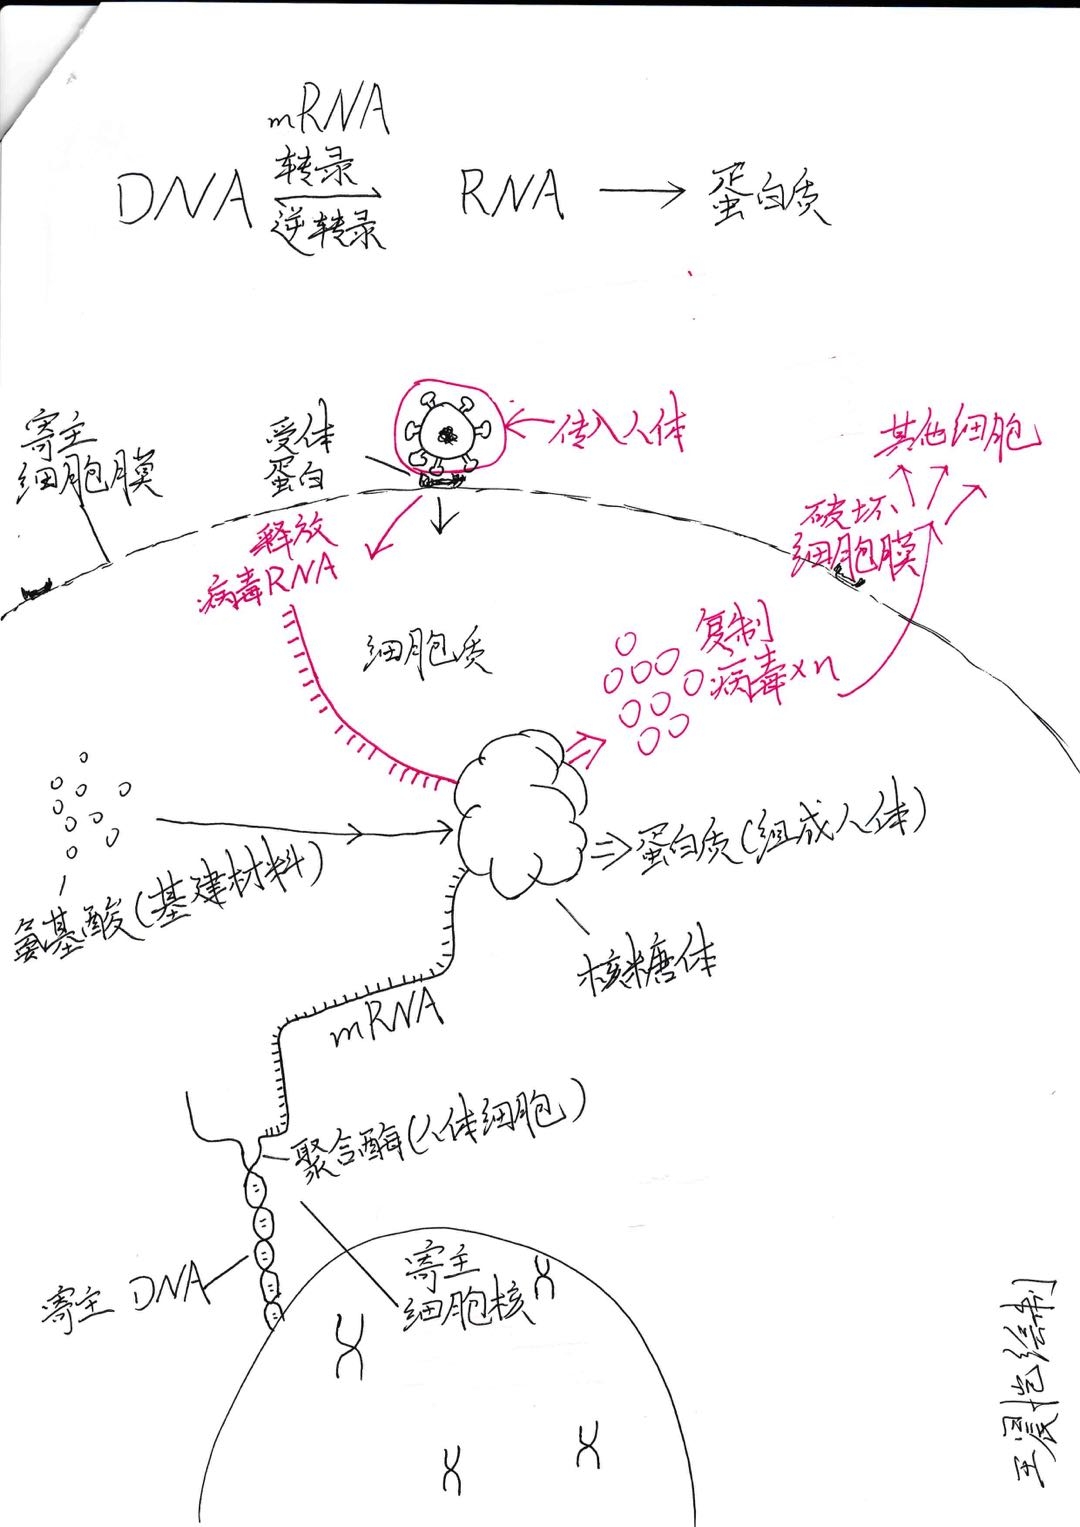 mRNA
转录
DNA
逆转录
RNA
蛋白质
寄主
细胞膜
受体
蛋白
传入人体
其他细胞
破坏
细胞膜
释放
病毒RNA
细胞质
复制
病毒×n
氨基酸(基建材料)
蛋白质(组成人体)
核糖体
mRNA
聚合酶(人体细胞)
寄主 DNA
寄主
细胞核